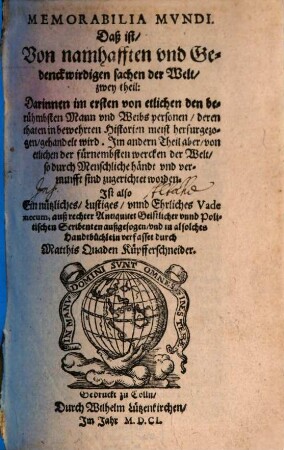 MEMORABILIA MVNDI.
Daß ist/
Von namhafften vnd Ge-
denckwirdigen sachen der Welt/
zwey theil:
Darinnen im ersten von etlichen den be-
rühmbsten Mann vnd Weibs personen / deren
thaten in bewehrten Historien meist herfurgezo-
gen/gehandelt wird. Im andern Theil aber/von
etlichen der fürnembsten wercken der Welt/
so durch Menschliche händt vnd ver-
nunfft sind zugerichtet worden.
Ist also
Ein nützliches/ lustiges/ vnnd Ehrliches Vade
mecum, auß rechter Antiquitet Geistlicher vnnd Poli-
tischen Scribenten außgesogen/vnd in al solches
Handtbüchlein verfasset durch
Matthis Quaden Küpfferschneider.
IN MANV DOMINI SVNT OMNES FINES TERRAE
Gedruckt zu Cölln/
Durch Wilhelm Lützenkirchen/
Im Jahr M. DCI.